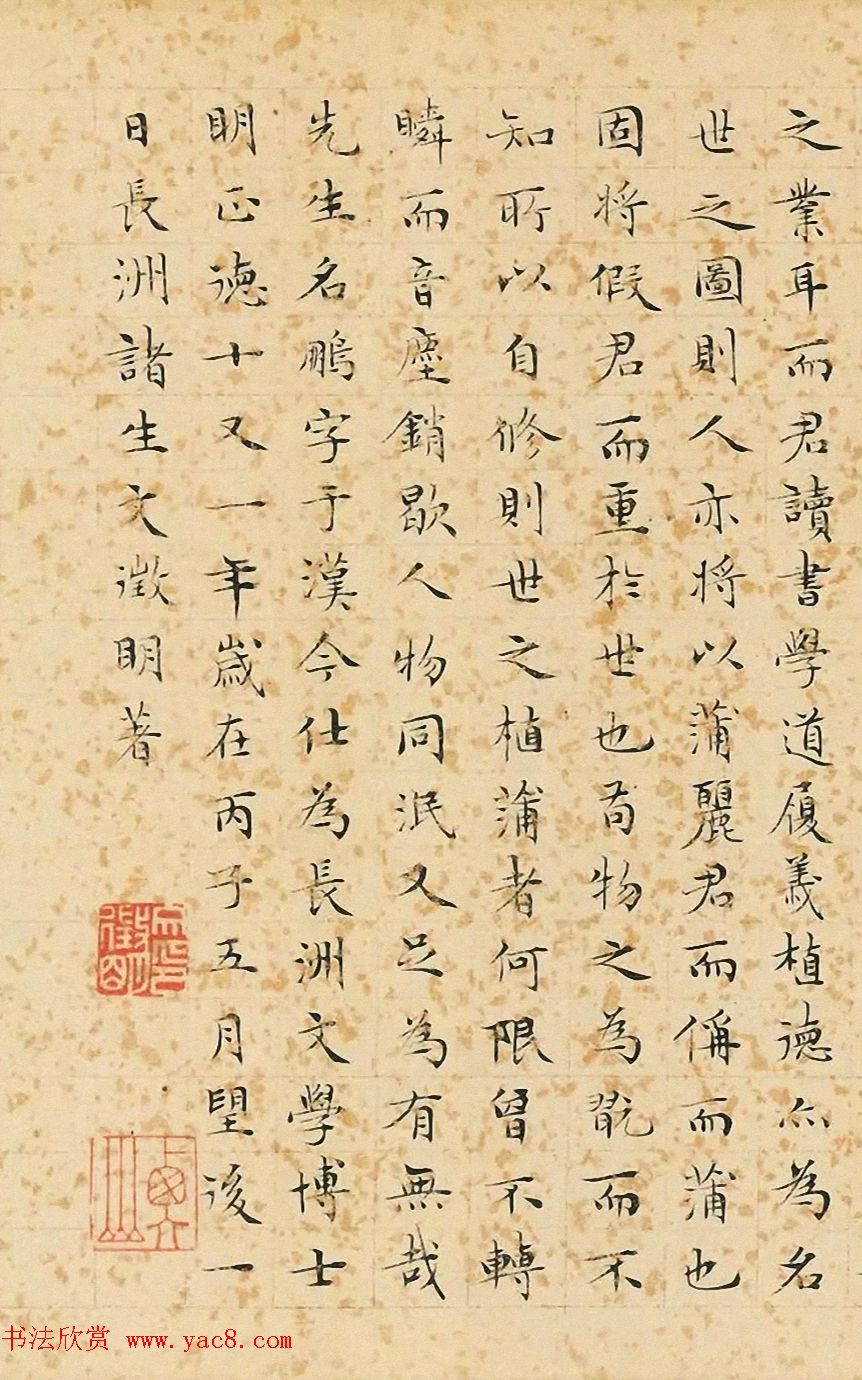 之業耳而君讀書學道履義植德亦為名
世之圖則人亦將以蒲麗君而偁而蒲也
固將假君而重於世也苟物之為翫而不
知所以自修則世之植蒲者何限曾不轉
瞬而音塵銷歇人物同泯又足為有無哉
先生名鵬字于漢今仕為長洲文學博士
明正德十又一年歲在丙子五月望後一
日長洲諸生文徵明著
书法欣赏 www.yac8.com